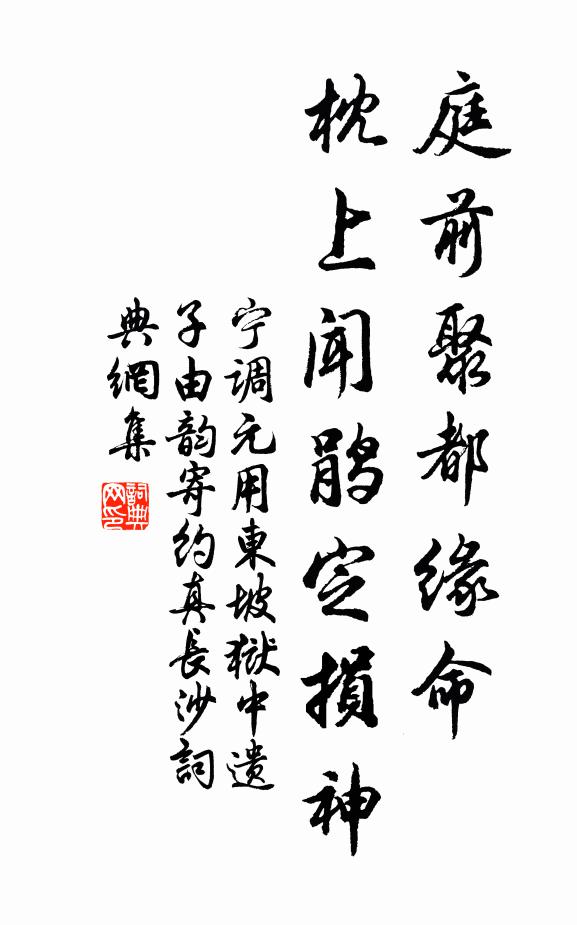 庭前聚都缘命
枕上闻鹃定損神
宁调元用東坡獄中遗
子由韵寄约真長沙詞
典網集
詞典
网印